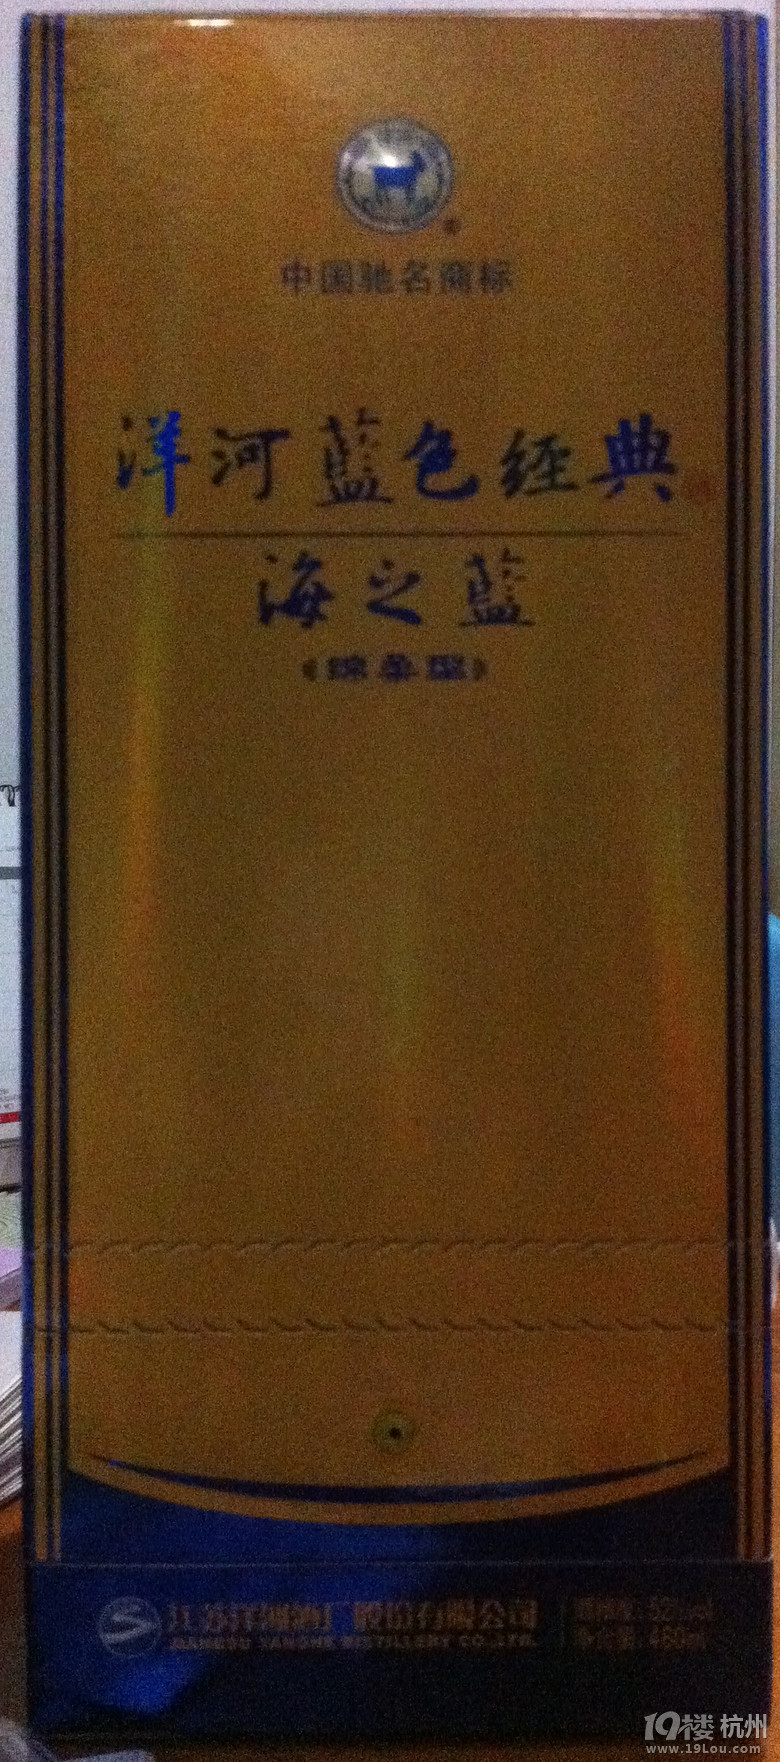 中国驰名商标
洋河藍色经典
海之藍
《绵柔型》
江苏洋河酒厂股份有限公司
JIANGSU YANGHE DISTILLERY CO.,LTD.
净含量: 480ml
19楼 杭州
www.19Lou.com